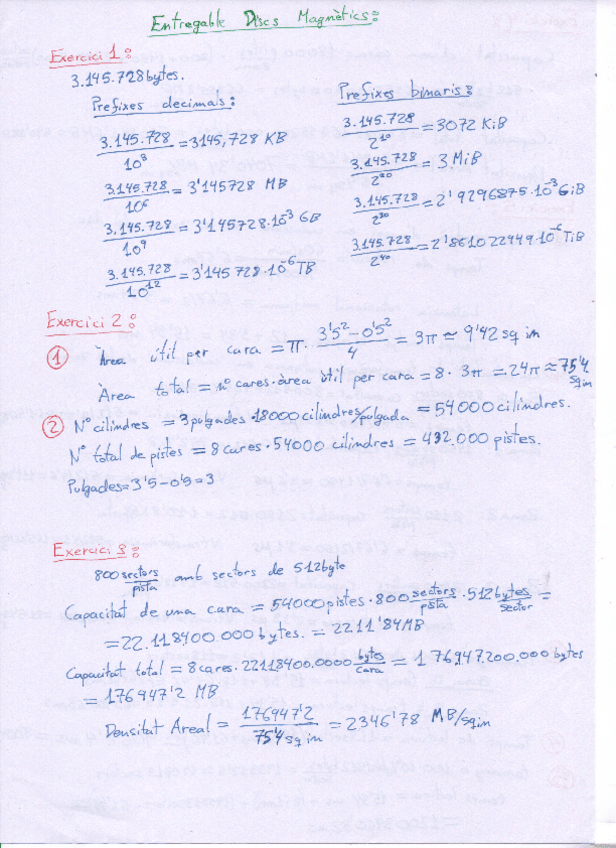 Entregable Discs Magnètics:
Exercici 1:
3.145.728 bytes.
Prefixes decimals:
3.145.728 / 10³ = 3145,728 KB
3.145.728 / 10⁶ = 3'145728 MB
3.145.728 / 10⁹ = 3'145728·10⁻³ GB
3.145.728 / 10¹² = 3'145728·10⁻⁶ TB
Prefixes binaris:
3.145.728 / 2¹⁰ = 3072 KiB
3.145.728 / 2²⁰ = 3 MiB
3.145.728 / 2³⁰ = 2'9296875·10⁻³ GiB
3.145.728 / 2⁴⁰ = 2'861022449·10⁻⁶ TiB
Exercici 2:
① Àrea útil per cara = π · (3'5² - 0'5²) / 4 = 3π ≈ 9'42 sq im
Àrea total = nº cares · àrea útil per cara = 8 · 3π = 24π ≈ 75'4 sqim
② Nº cilindres = 3 pulgades · 18000 cilindres/pulgada = 54000 cilindres.
Nº total de pistes = 8 cares · 54000 cilindres = 432.000 pistes.
Pulgades = 3'5 - 0'5 = 3
Exercici 3:
800 sectors/pista amb sectors de 512byte
Capacitat de una cara = 54000 pistes · 800 sectors/pista · 512 bytes/sector =
= 22.118400.000 bytes. = 2211'84MB
Capacitat total = 8 cares · 22118400.0000 bytes/cara = 176.947.200.000 bytes
= 176947'2 MB
Densitat Areal = 176947'2 / 75'4 sq im = 2346'78 MB/sqim